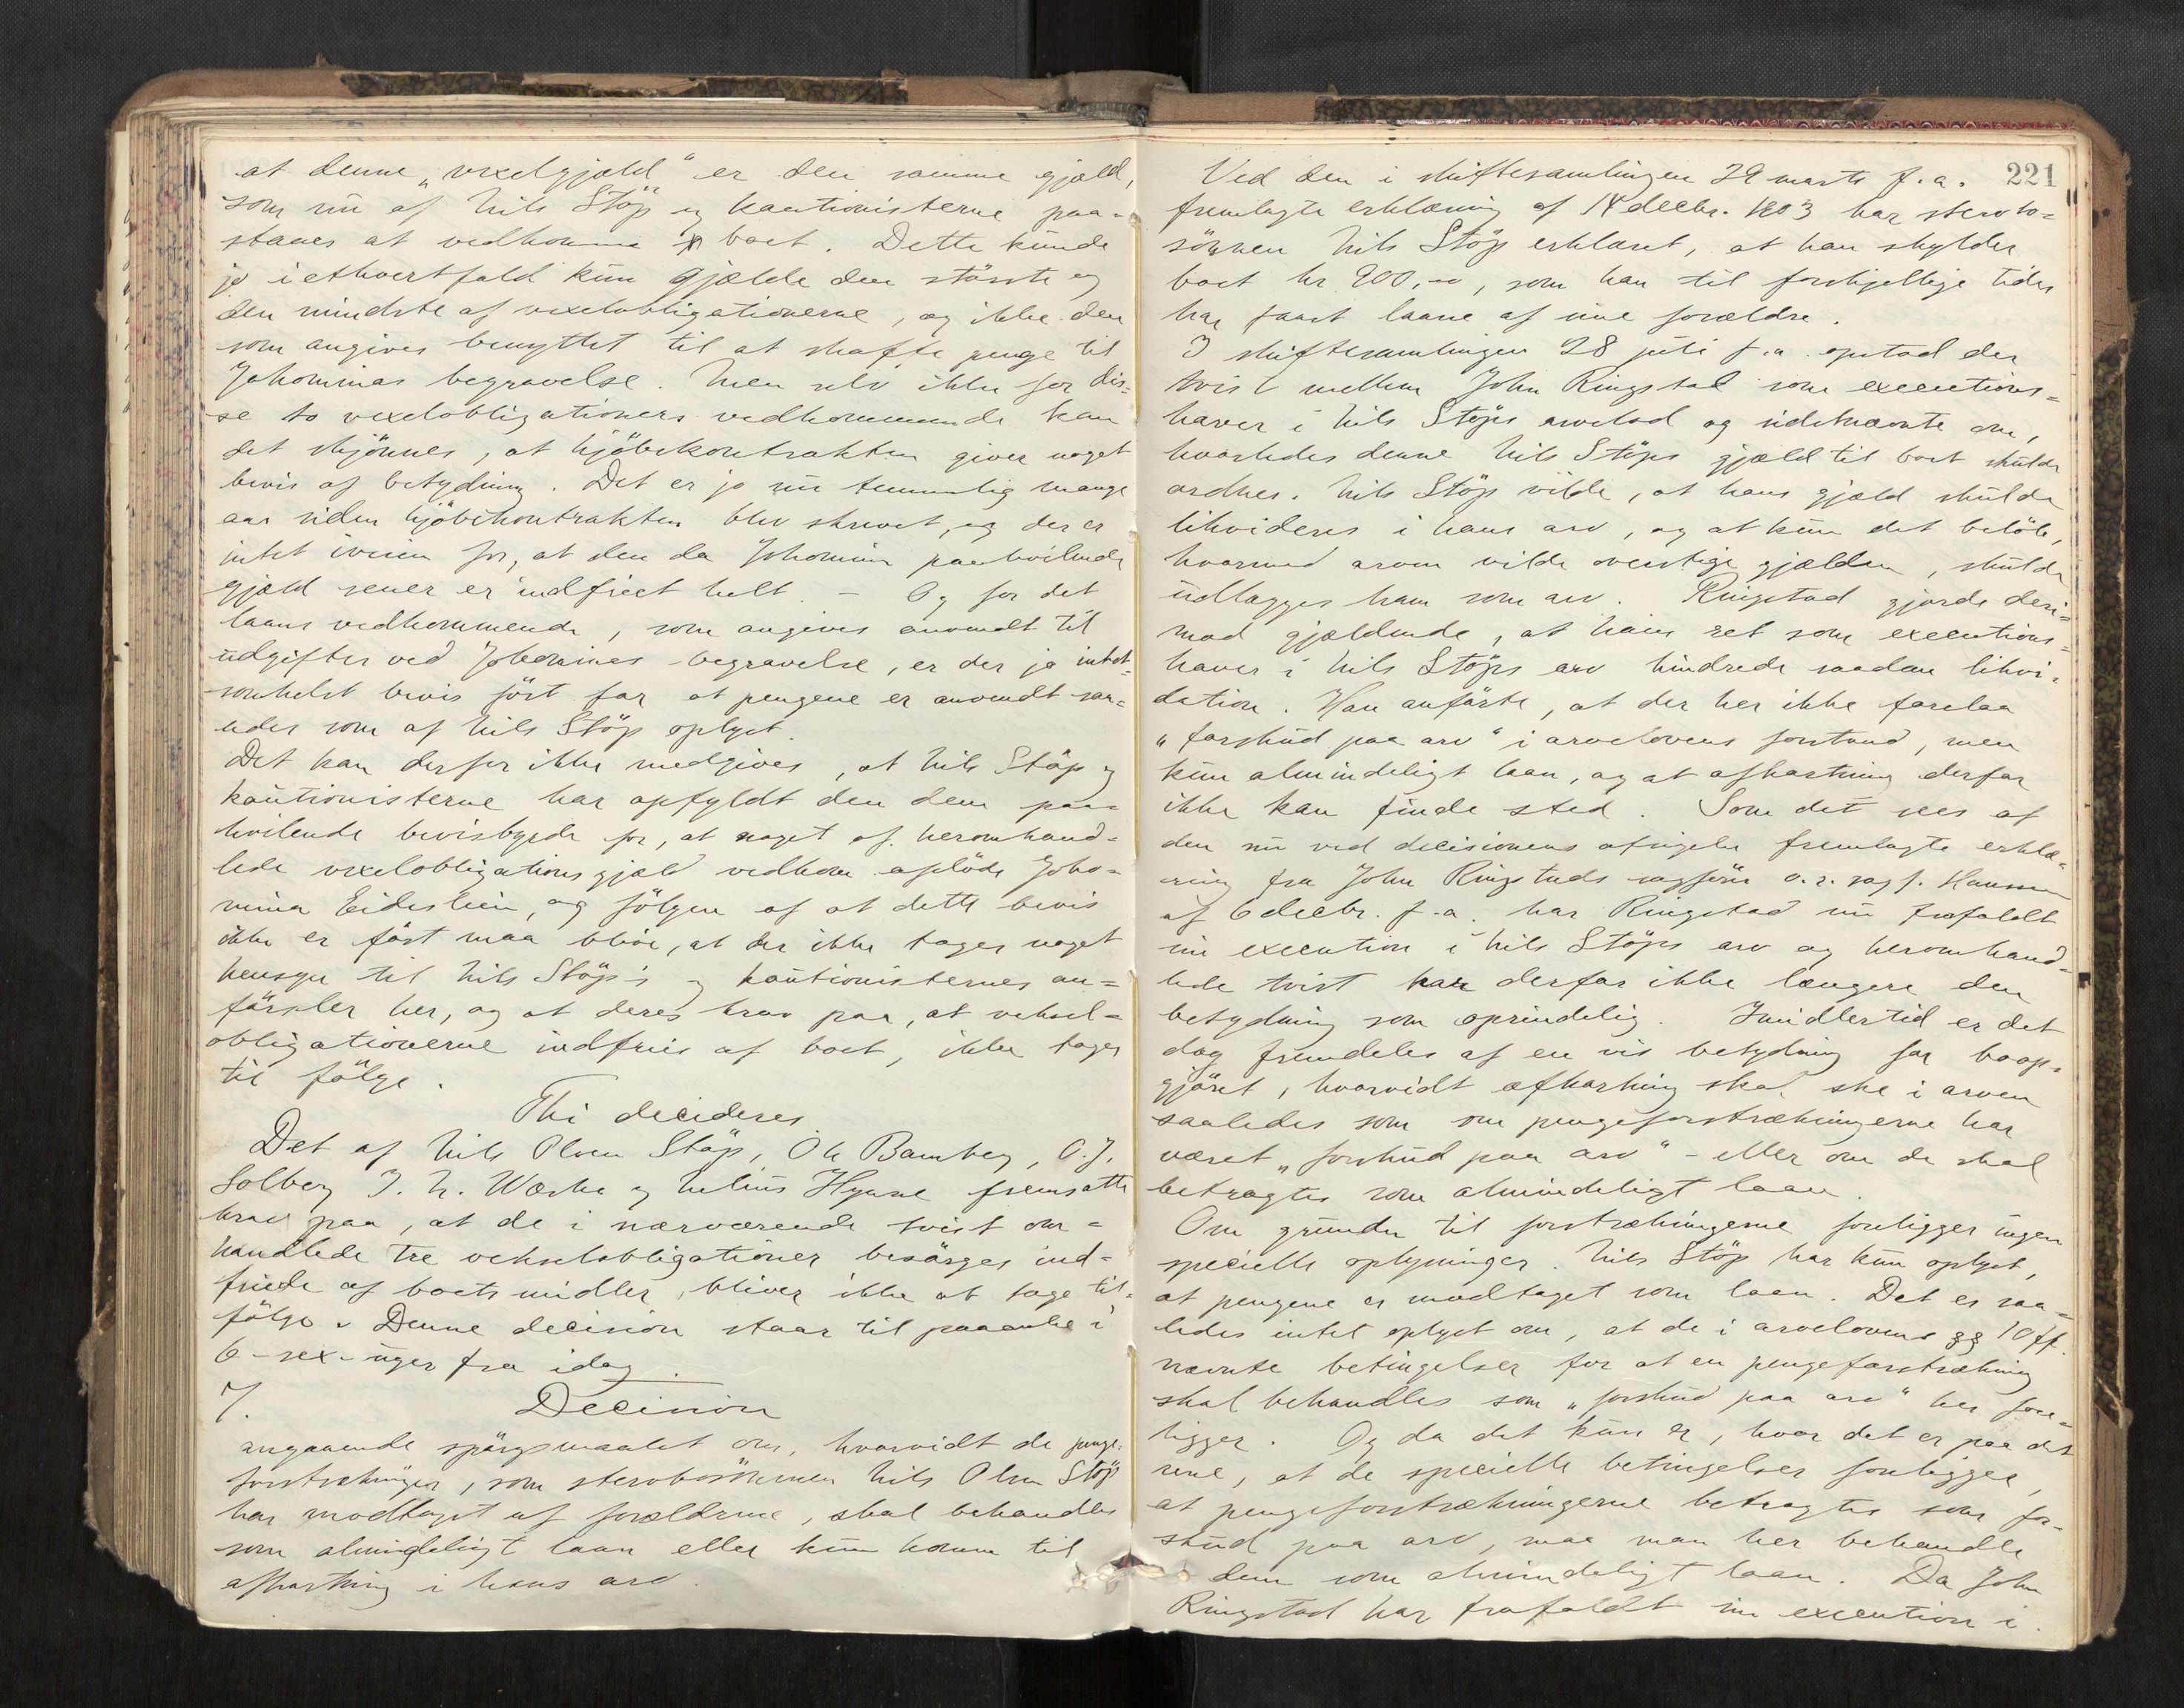 at denne „vexelgjæld" er den samme gjæld,
som nu af Nils Støp og kautionisterne paa-
staaes at vedkomme boet. Dette kunde
jo i ethvertfald kun gjælde den største og
den mindste af vexelobligationerne, og ikke den
som angives benyttet til at skaffe penge til
Johominas begravelse. Men selv ikke for dis-
se to vexelobligationers vedkommende kan
det skjønnes, at kjøbekontrakten giver noget
bevis af betydning. Det er jo nu temmelig mange
aar siden kjøbekontrakten blev skrevet, og der er
intet iveien for, at den da Johomina paahvilende
gjæld senere er indfriet helt. – Og for det
laans vedkommende, som angives anvendt til
udgifter ved Johominas begravelse, er der jo intet-
somhelst bevis ført for at pengene er anvendt saa-
ledes som af Nils Støp oplyst.
Det kan derfor ikke medgives, at Nils Støp og
kautionisterne har opfyldt den dem paa-
hvilende bevisbyrde for, at noget af heromhand-
lede vexelobligationsgjæld vedkom afdøde Joho-
mina Eidesliem, og følgen af at dette bevis
ikke er ført maa blive, at der ikke tages noget
hensyn til Nils Støp's og kautionisternes an-
førsler her, og at deres krav paa, at veksel-
obligationerne indfries af boet, ikke tages
til følge.
Thi decideres
Det af Nils Olsen Støp, Ole Bamberg, O. J.
Solberg J. N. Wæske og Nelius Hynne fremsatte
krav paa, at de i nærværende tvist om-
handlede tre vekselobligationer besørges ind-
friede af boets midler, bliver ikke at tage til-
følge. Denne decision staar til paaanke i
6-sex-uger fra idag.
7. Decision
angaaende spørgsmaalet om, hvorvidt de penge-
forstrækninger, som stervbosønnen Nils Olsen Støp
har modtaget af forældrene, skal behandles
som almindeligt laan eller kun komme til
afkortning i hans arv.
221
Ved den i skiftesamlingen 29 marts f. a.
fremlagte erklæring af 14 decbr. 1903 har stervbo-
sønnen Nils Støp erklæret, at han skylder
boet kr 900,-, som han til forskjellige tider
har faaet laane af sine forældre.
I skiftesamlingen 28 juli f. a. opstod der
tvist mellem John Ringstad som executions-
haver i Nils Støps arvelod og sidstnævnte om,
hvorledes denne Nils Støps gjæld til boet skulde
ordnes. Nils Støp vilde, at hans gjæld skulde
likvideres i hans arv, og at kun det beløb,
hvormed arven vilde overstige gjælden, skulde
udlægges ham som arv. Ringstad gjorde deri-
mod gjældende, at hans ret som executions-
haver i Nils Støps arv hindrede saadan likvi-
dation. Han anførte, at der her ikke forelaa
„forskud paa arv" i arvelovens forstand, men
kun almindeligt laan, og at afkortning derfor
ikke kan finde sted. Som det sees af
den nu ved decisionens afsigelse fremlagte erklæ-
ring fra John Ringstads sagfører o. r. sagf. Hanssen
af 6 decbr. f. a. har Ringstad nu frafaldt
sin execution i Nils Støps arv og heromhand-
lede tvist har derfor ikke længere den
betydning som oprindelig. Imidlertid er det
dog fremdeles af en vis betydning for boop-
gjøret, hvorvidt afkortning skal ske i arven
saaledes som om pengeforstrækningerne har
været „forskud paa arv" – eller om de skal
betragtes som almindeligt laan.
Om grunden til forstrækningerne foreligger ingen
specielle oplysninger. Nils Støp har kun oplyst,
at pengene er modtaget som laan. Det er saa-
ledes intet oplyst om, at de i arvelovens §§ 10 ff.
nævnte betingelser for at en pengeforstrækning
skal behandles som „forskud paa arv" her fore-
ligger. Og da det kun er, hvor det er paa det
rene, at de specielle betingelser foreligger,
at pengeforstrækningerne betragtes som for-
skud paa arv, maa man her behandle
dem som almindeligt laan. Da John
Ringstad har frafaldt sin execution i